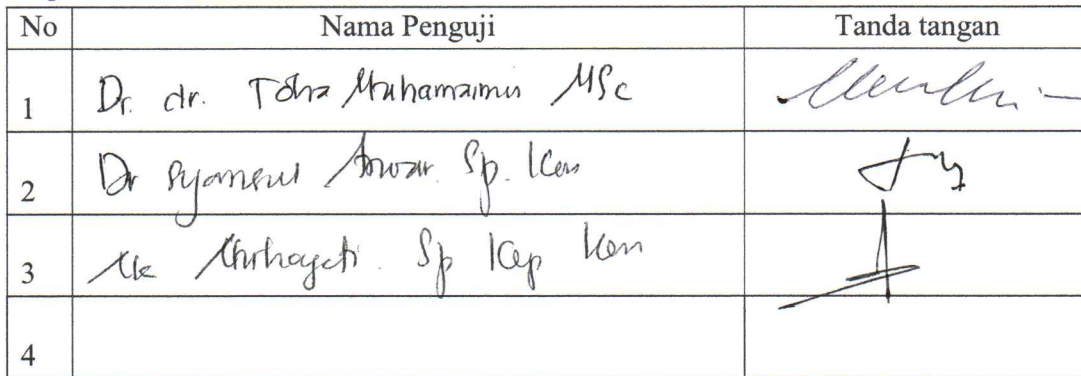 No Nama Penguji Tanda tangan
1 Dr. dr. Toha Muhaimin MSc
2 Dr Syamsul Anwar. Sp. Kom
3 Nurhayati. Sp Kep Kom
4